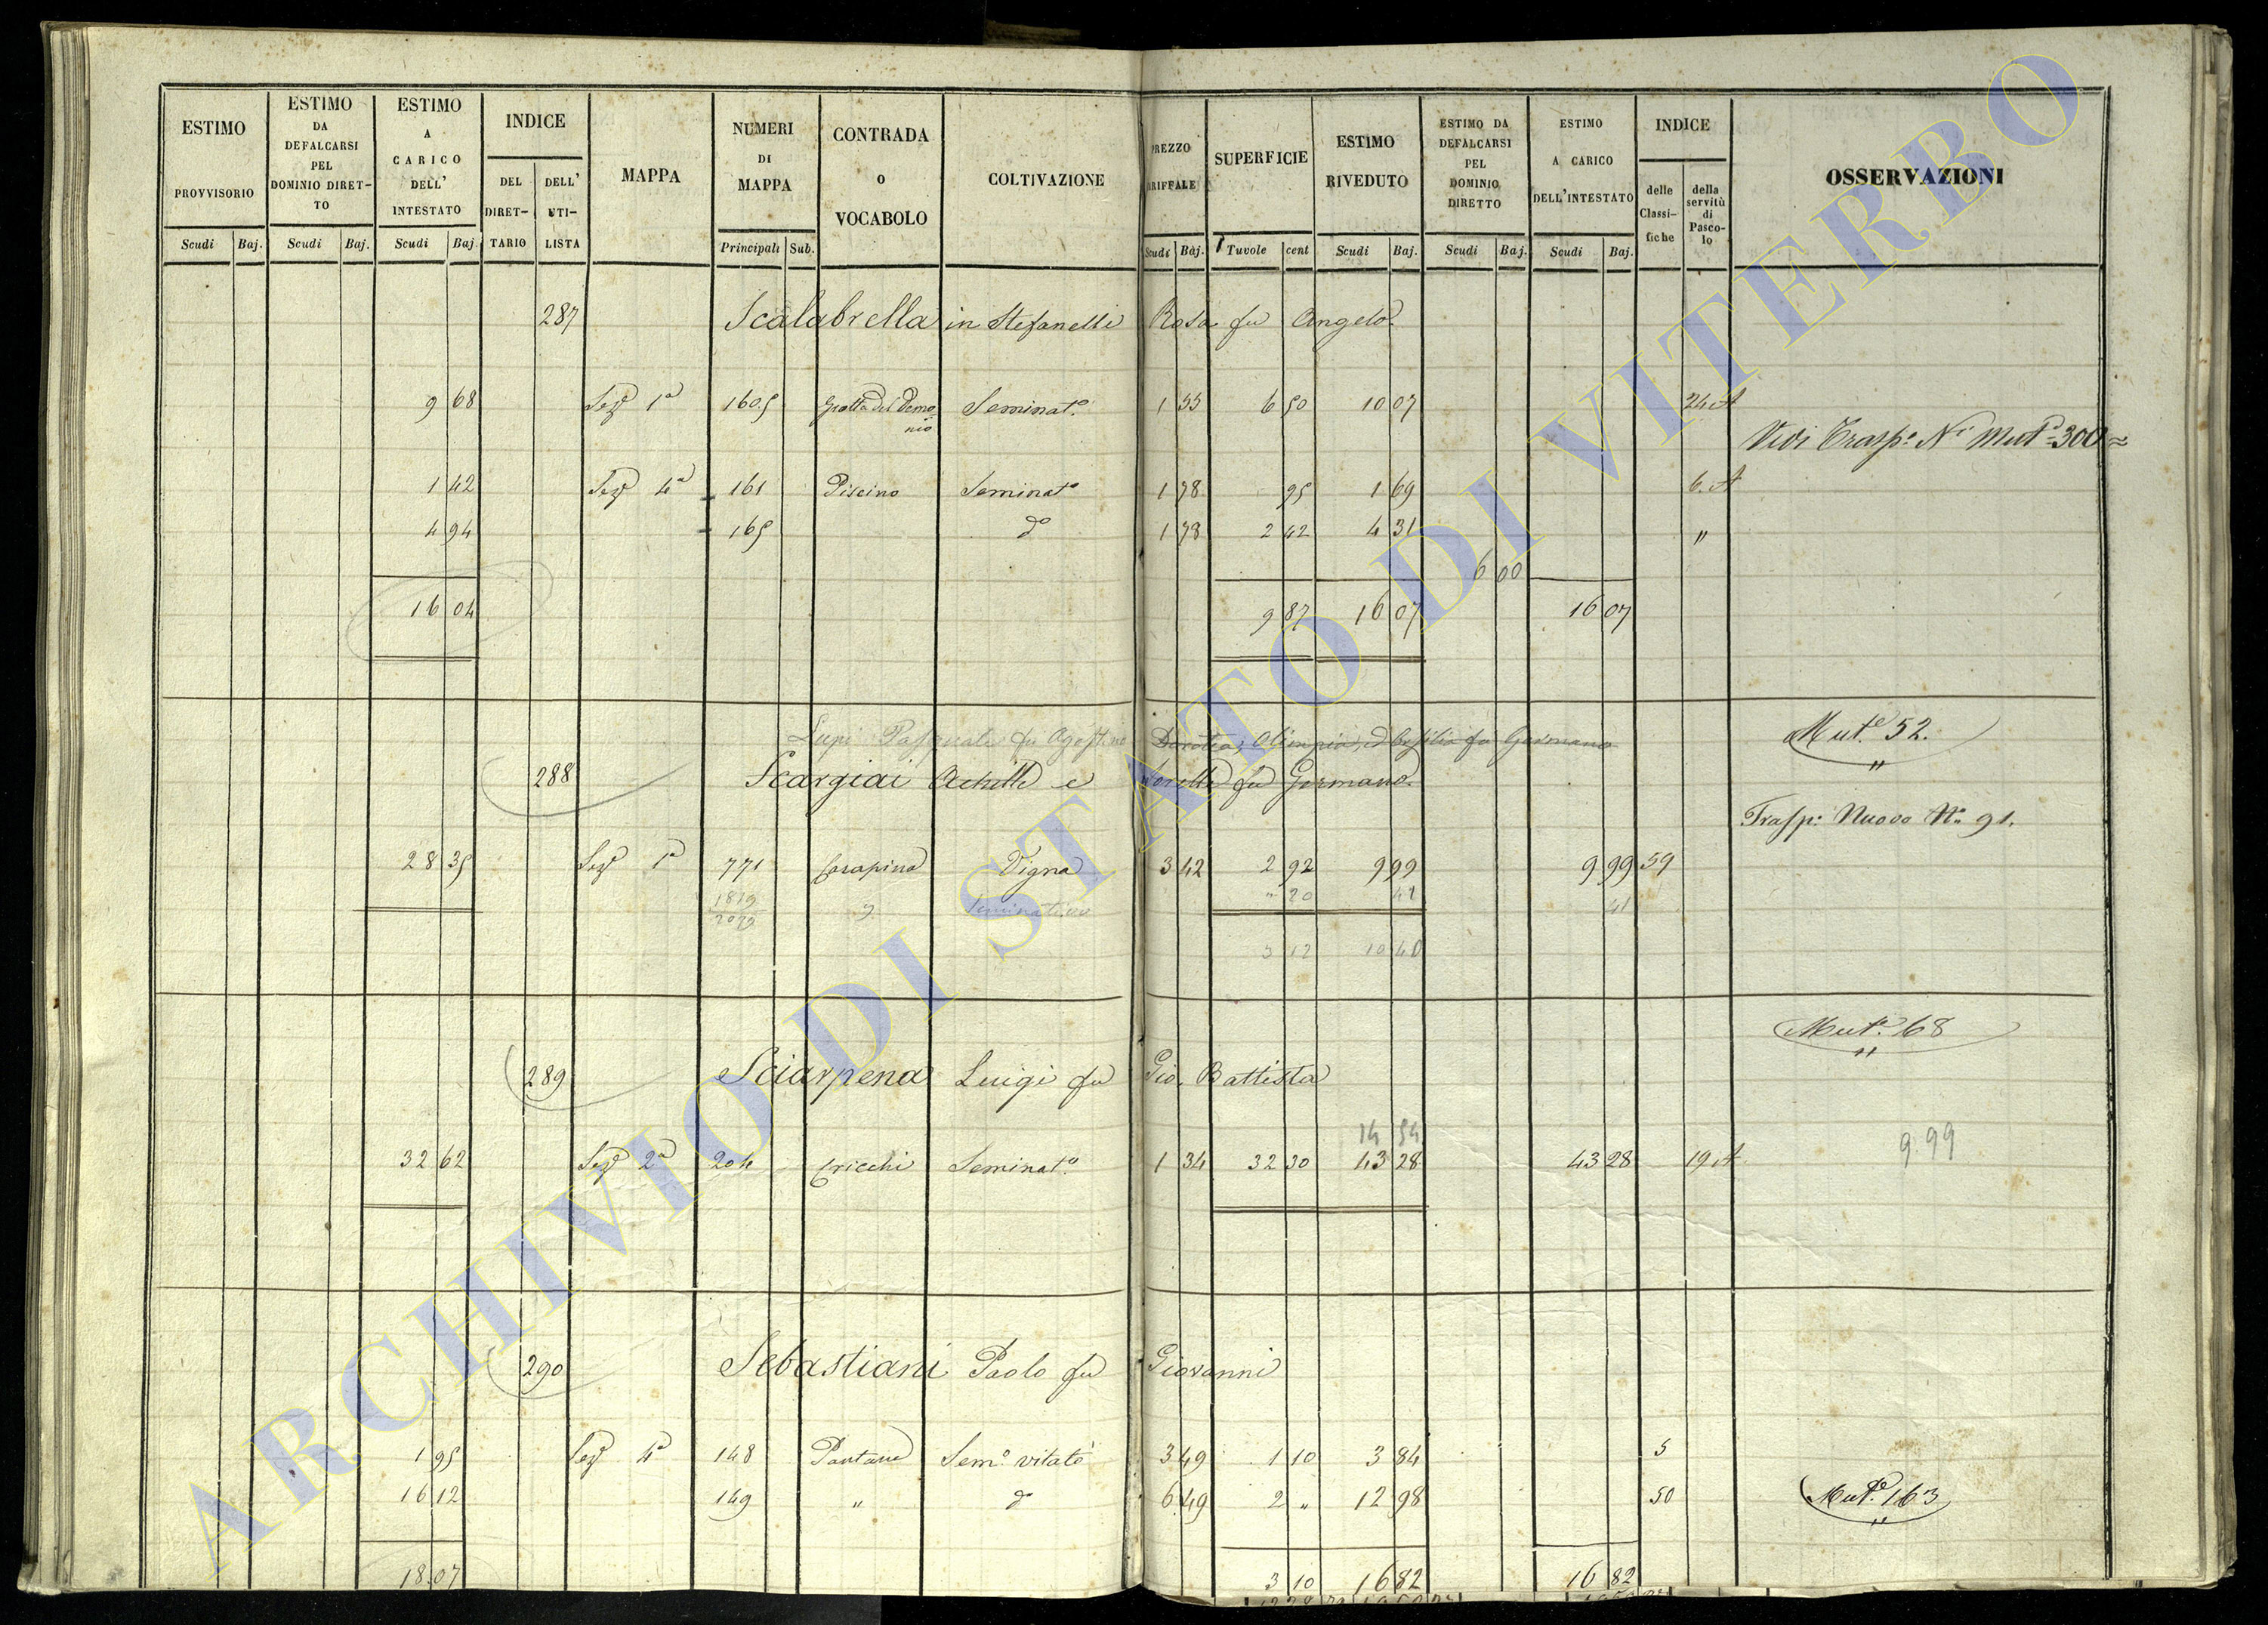 ESTIMO PROVVISORIO Scudi Baj.
ESTIMO DA DEFALCARSI PEL DOMINIO DIRET-TO Scudi Baj.
ESTIMO A CARICO DELL' INTESTATO Scudi Baj.
INDICE DEL DIRET-TARIO DELL' UTI-LISTA
MAPPA
NUMERI DI MAPPA Principali Sub.
CONTRADA O VOCABOLO
COLTIVAZIONE
PREZZO Scudi Baj.
SUPERFICIE Tavole cent
ESTIMO RIVEDUTO Scudi Baj.
ESTIMO DA DEFALCARSI PEL DOMINIO DIRETTO Scudi Baj.
ESTIMO A CARICO DELL'INTESTATO Scudi Baj.
INDICE delle Classi-fiche della servitù di Pasco-lo
OSSERVAZIONI
287 Scalabrella in Stefanelli Rosa fu Angelo
9 68 Sezᵉ 1ª 1605 Grotta del Demonio Seminatº 1 55 6 50 10 07 24 A
Vidi Trasp: Nº Mutº 300
1 42 Sezᵉ 4ª 161 Piscino Seminatº 1 78 95 1 69 6 A
4 94 165 dº 1 78 2 42 4 31 "
6 00
16 04 9 87 16 07 16 07
Lupi Pasquale fu Agostino Dorotea, Olimpia, fu Germano
Mutᵉ 52.
288 Scargiai Achille e Sorelle fu Germano
Trasp: Nuovo Nº 91.
28 35 Sezᵉ 1ª 771 Carapina Vigna 3 42 2 92 9 99 9 99 59
1819 2029 Seminativo " 20 41 41
3 12 10 40
Mutᵉ 68
289 Sciarpena Luigi fu Gio. Battista
14 54
32 62 Sezᵉ 2ª 204 Cricchi Seminatº 1 34 32 30 43 28 43 28 19 A 9.99
290 Sebastiani Paolo fu Giovanni
1 95 Sezᵉ 4ª 148 Pantane Semº vitatº 3 49 1 10 3 84 5
16 12 149 " dº 6 49 2 " 12 98 50 Mutᵉ 163
18.07 3 10 16 82 16 82
ARCHIVIO DI STATO DI VITERBO